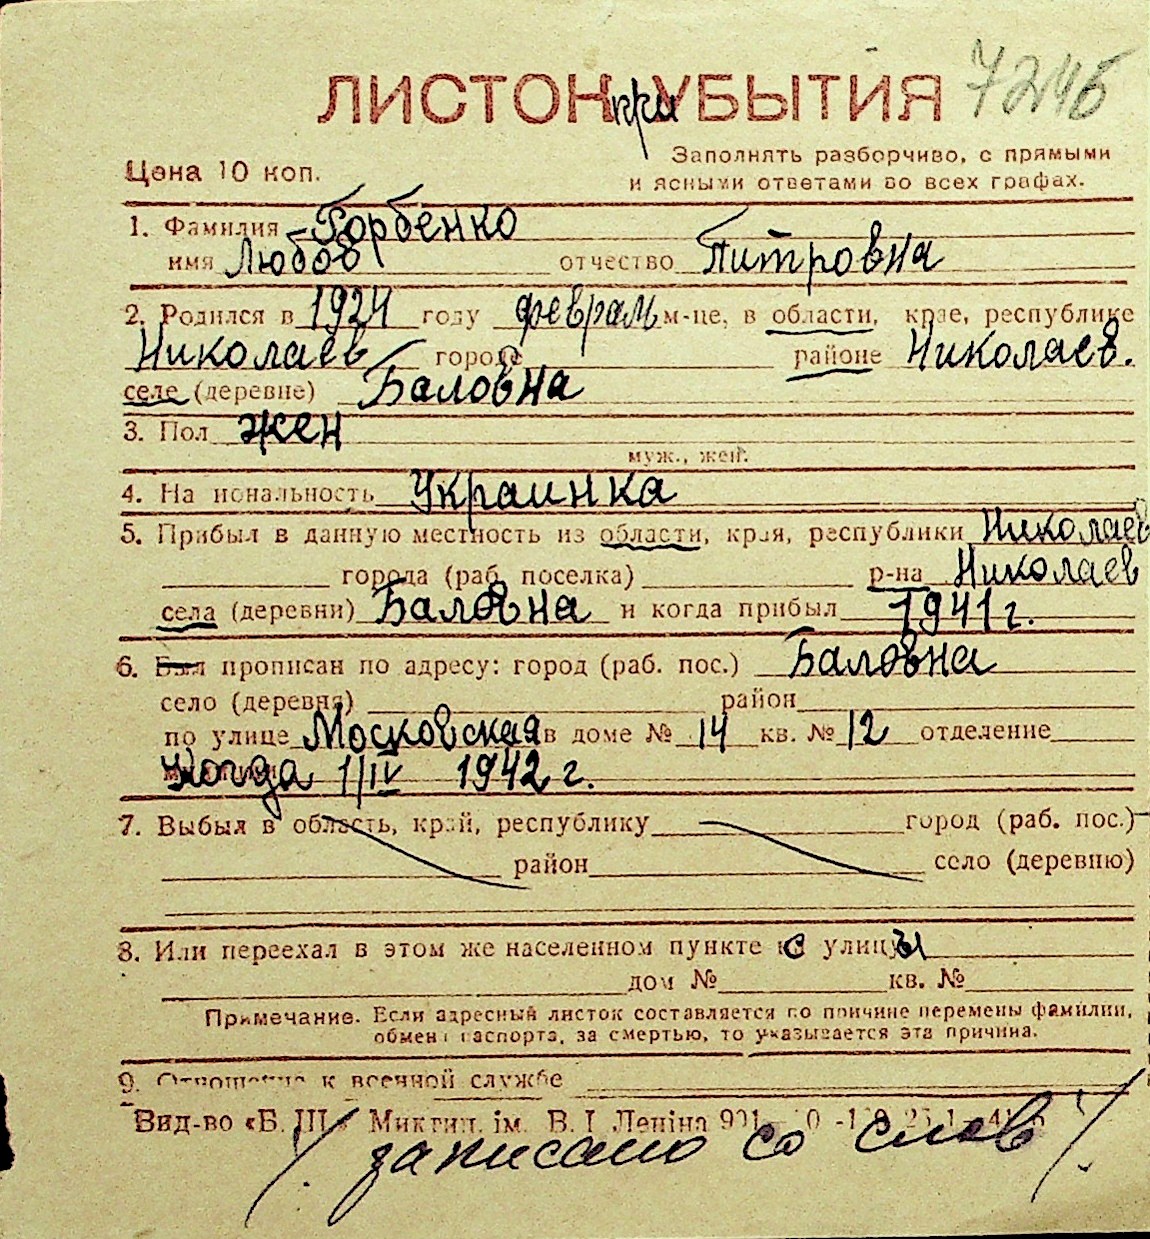 ЛИСТОК при УБЫТИЯ 7246
Цена 10 коп.
Заполнять разборчиво, с прямыми
и ясными ответами во всех графах.
1. Фамилия Горбенко
имя Любов отчество Питровна
2. Родился в 1924 году феврам м-це, в области, крае, республике
Николаев городе районе Николаев.
селе (деревне) Баловна
3. Пол жен
муж., жен.
4. На иональность Украинка
5. Прибыл в данную местность из области, края, республики Николаев
города (раб. поселка) р-на Николаев
села (деревни) Баловна и когда прибыл 1941 г.
6. Был прописан по адресу: город (раб. пос.) Баловна
село (деревня) район
по улице Московская в доме № 14 кв. № 12 отделение
Когда 1/IV 1942 г.
7. Выбыл в область, край, республику город (раб. пос.)
район село (деревню)
8. Или переехал в этом же населенном пункте с улицы
дом № кв. №
Примечание. Если адресный листок составляется по причине перемены фамилии,
обмена паспорта, за смертью, то указывается эта причина.
9. Отношение к военной службе
Вид-во «Б. Ш.» Миктип. ім. В. І. Леніна
/. записано со слов /.